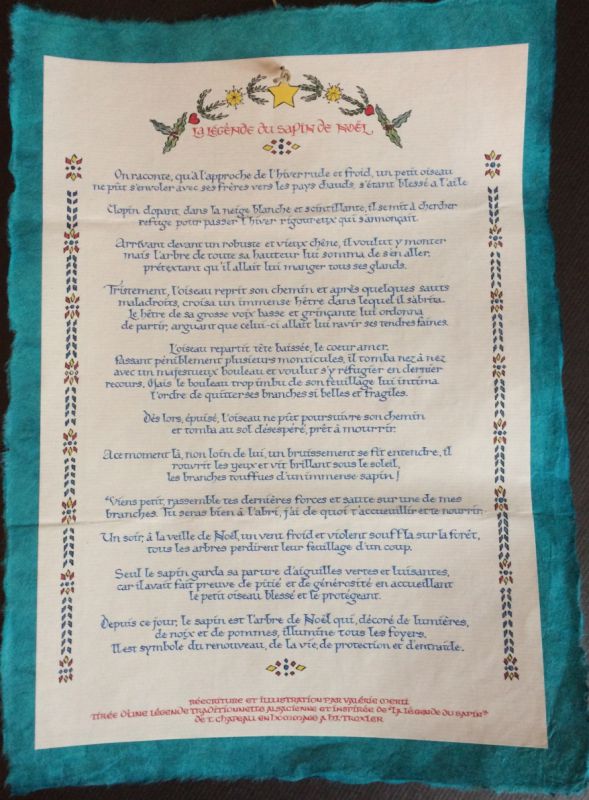 La Légende du Sapin de Noël
On raconte, qu'à l'approche de l'hiver rude et froid, un petit oiseau
ne pût s'envoler avec ses frères vers les pays chauds, s'étant blessé à l'aile
Clopin clopant, dans la neige blanche et scintillante, il se mit à chercher
refuge pour passer l'hiver rigoureux qui s'annonçait.
Arrivant devant un robuste et vieux chêne, il voulut y monter
mais l'arbre de toute sa hauteur lui somma de s'en aller,
prétextant qu'il allait lui manger tous ses glands.
Tristement, l'oiseau reprit son chemin et après quelques sauts
maladroits, croisa un immense hêtre dans lequel il s'abrita.
Le hêtre de sa grosse voix basse et grinçante lui ordonna
de partir, arguant que celui-ci allait lui ravir ses tendres faines.
L'oiseau repartit tête baissée, le coeur amer.
Passant péniblement plusieurs monticules, il tomba nez à nez
avec un majestueux bouleau et voulut s'y réfugier en dernier
recours. Mais le bouleau trop imbu de son feuillage lui intima
l'ordre de quitter ses branches si belles et fragiles.
Dès lors, épuisé, l'oiseau ne pût poursuivre son chemin
et tomba au sol désespéré, prêt à mourrir.
A ce moment là, non loin de lui, un bruissement se fit entendre, il
rouvrit les yeux et vit brillant sous le soleil,
les branches touffues d'un immense sapin !
"Viens petit, rassemble tes dernières forces et saute sur une de mes
branches. Tu seras bien à l'abri, j'ai de quoi t'accueuillir et te nourrir.
Un soir, à la veille de Noël, un vent froid et violent souffla sur la forêt,
tous les arbres perdirent leur feuillage d'un coup.
Seul le sapin garda sa parure d'aiguilles vertes et luisantes,
car il avait fait preuve de pitié et de générosité en accueillant
le petit oiseau blessé et le protégeant.
Depuis ce jour, le sapin est l'arbre de Noël qui, décoré de lumières,
de noix et de pommes, illumine tous les foyers.
Il est symbole du renouveau, de la vie, de protection et d'entraide.
Réécriture et illustration par Valérie
Tirée d'une légende traditionnelle alsacienne et inspirée de "La Légende du Sapin"
de T. Chapeau en hommage à M. Troxler